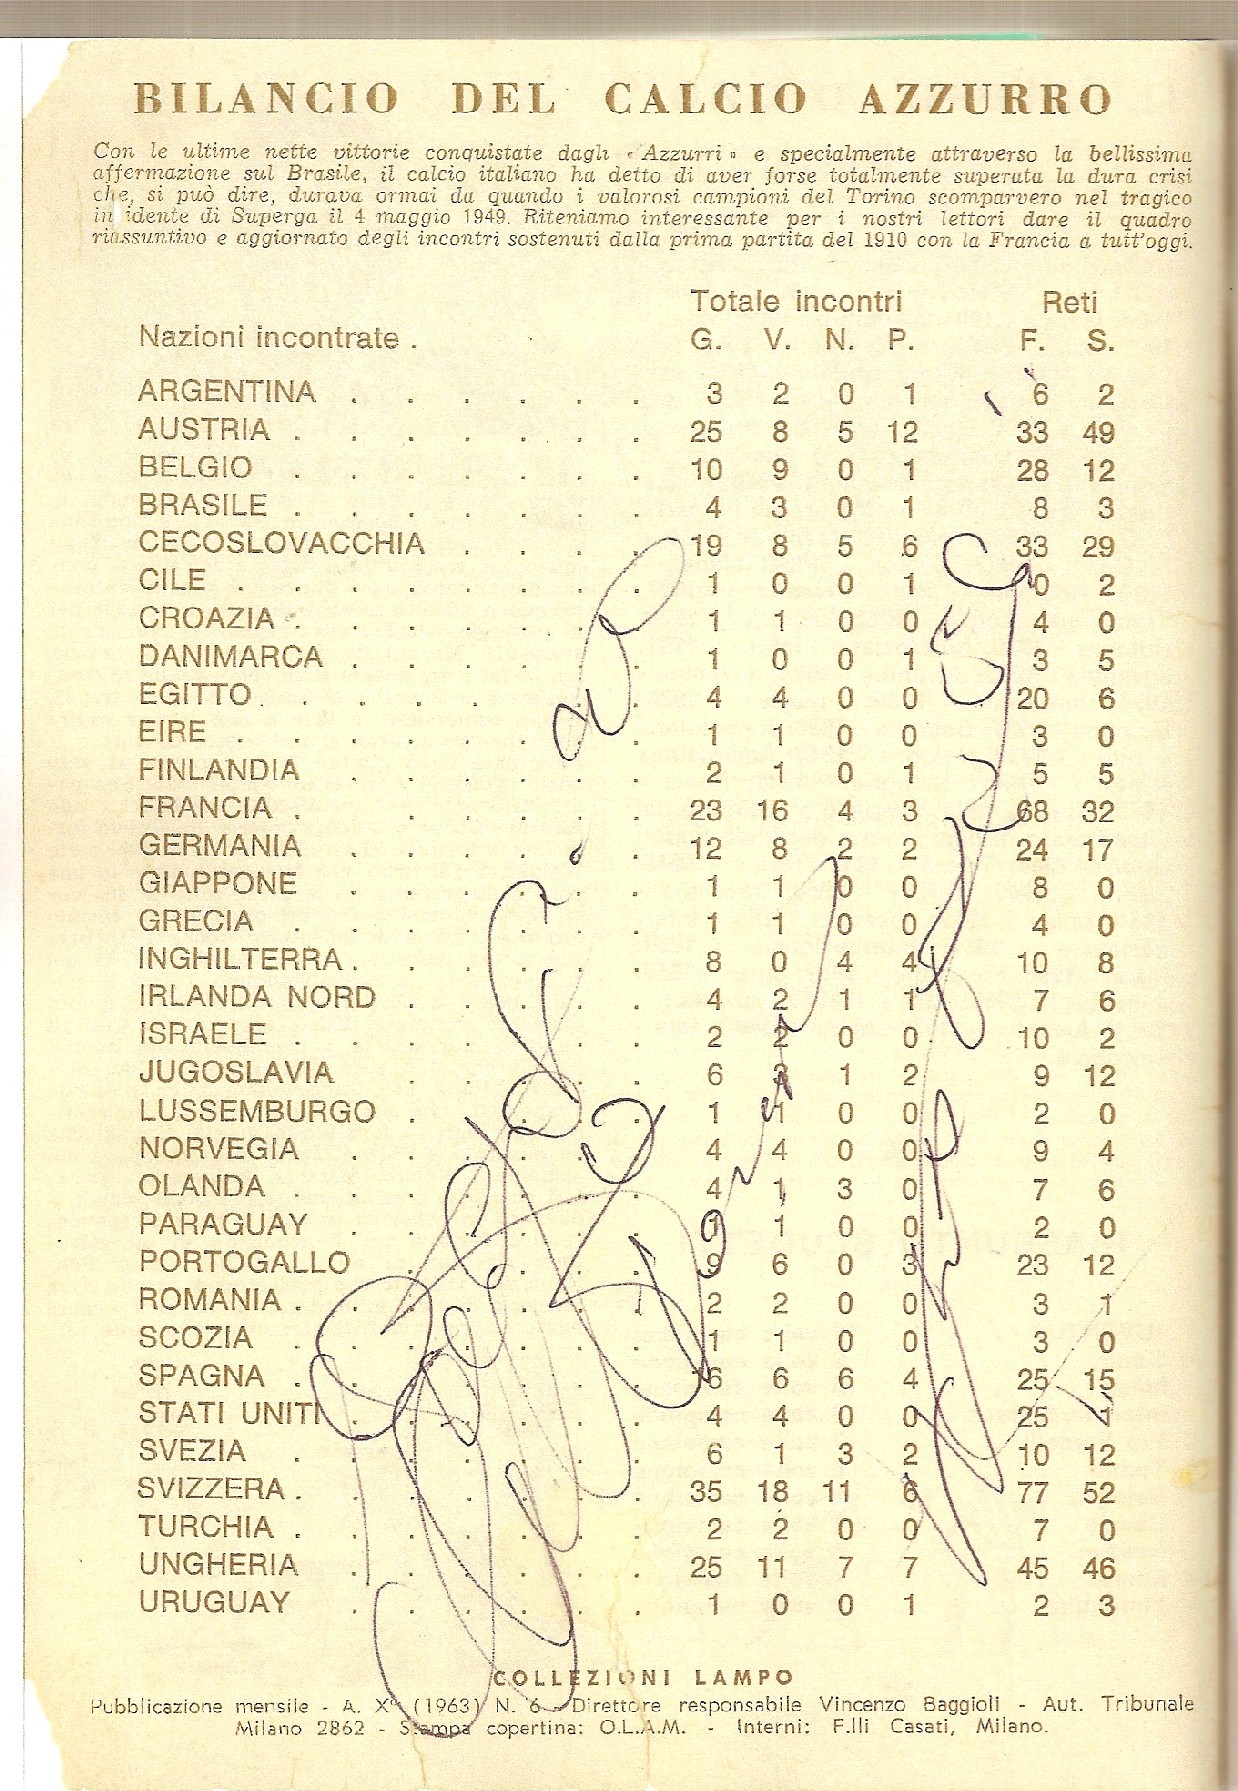 BILANCIO DEL CALCIO AZZURRO
Con le ultime nette vittorie conquistate dagli « Azzurri » e specialmente attraverso la bellissima
affermazione sul Brasile, il calcio italiano ha detto di aver forse totalmente superata la dura crisi
che, si può dire, durava ormai da quando i valorosi campioni del Torino scomparvero nel tragico
in idente di Superga il 4 maggio 1949. Riteniamo interessante per i nostri lettori dare il quadro
riassuntivo e aggiornato degli incontri sostenuti dalla prima partita del 1910 con la Francia a tutt'oggi.
Totale incontri Reti
Nazioni incontrate . G. V. N. P. F. S.
ARGENTINA . . . . . . 3 2 0 1 6 2
AUSTRIA . . . . . . . 25 8 5 12 33 49
BELGIO . . . . . . . 10 9 0 1 28 12
BRASILE . . . . . . . 4 3 0 1 8 3
CECOSLOVACCHIA . . . . 19 8 5 6 33 29
CILE . . . . . . . . 1 0 0 1 0 2
CROAZIA . . . . . . . 1 1 0 0 4 0
DANIMARCA . . . . . . 1 0 0 1 3 5
EGITTO . . . . . . . 4 4 0 0 20 6
EIRE . . . . . . . . 1 1 0 0 3 0
FINLANDIA . . . . . . 2 1 0 1 5 5
FRANCIA . . . . . . 23 16 4 3 68 32
GERMANIA . . . . . . 12 8 2 2 24 17
GIAPPONE . . . . . . 1 1 0 0 8 0
GRECIA . . . . . . . 1 1 0 0 4 0
INGHILTERRA . . . . . . 8 0 4 4 10 8
IRLANDA NORD . . . . . 4 2 1 1 7 6
ISRAELE . . . . . . . 2 2 0 0 10 2
JUGOSLAVIA . . . . . 6 3 1 2 9 12
LUSSEMBURGO . . . . . 1 1 0 0 2 0
NORVEGIA . . . . . . 4 4 0 0 9 4
OLANDA . . . . . . . 4 1 3 0 7 6
PARAGUAY . . . . . . 1 1 0 0 2 0
PORTOGALLO . . . . . 9 6 0 3 23 12
ROMANIA . . . . . . . 2 2 0 0 3 1
SCOZIA . . . . . . . 1 1 0 0 3 0
SPAGNA . . . . . . . 16 6 6 4 25 15
STATI UNITI . . . . . . 4 4 0 0 25 1
SVEZIA . . . . . . . 6 1 3 2 10 12
SVIZZERA . . . . . . . 35 18 11 6 77 52
TURCHIA . . . . . . . 2 2 0 0 7 0
UNGHERIA . . . . . . 25 11 7 7 45 46
URUGUAY . . . . . . 1 0 0 1 2 3
COLLEZIONI LAMPO
Pubblicazione mensile - A. X° (1963) N. 6 - Direttore responsabile Vincenzo Baggioli - Aut. Tribunale
Milano 2862 - Stampa copertina: O.L.A.M. - Interni: F.lli Casati, Milano.